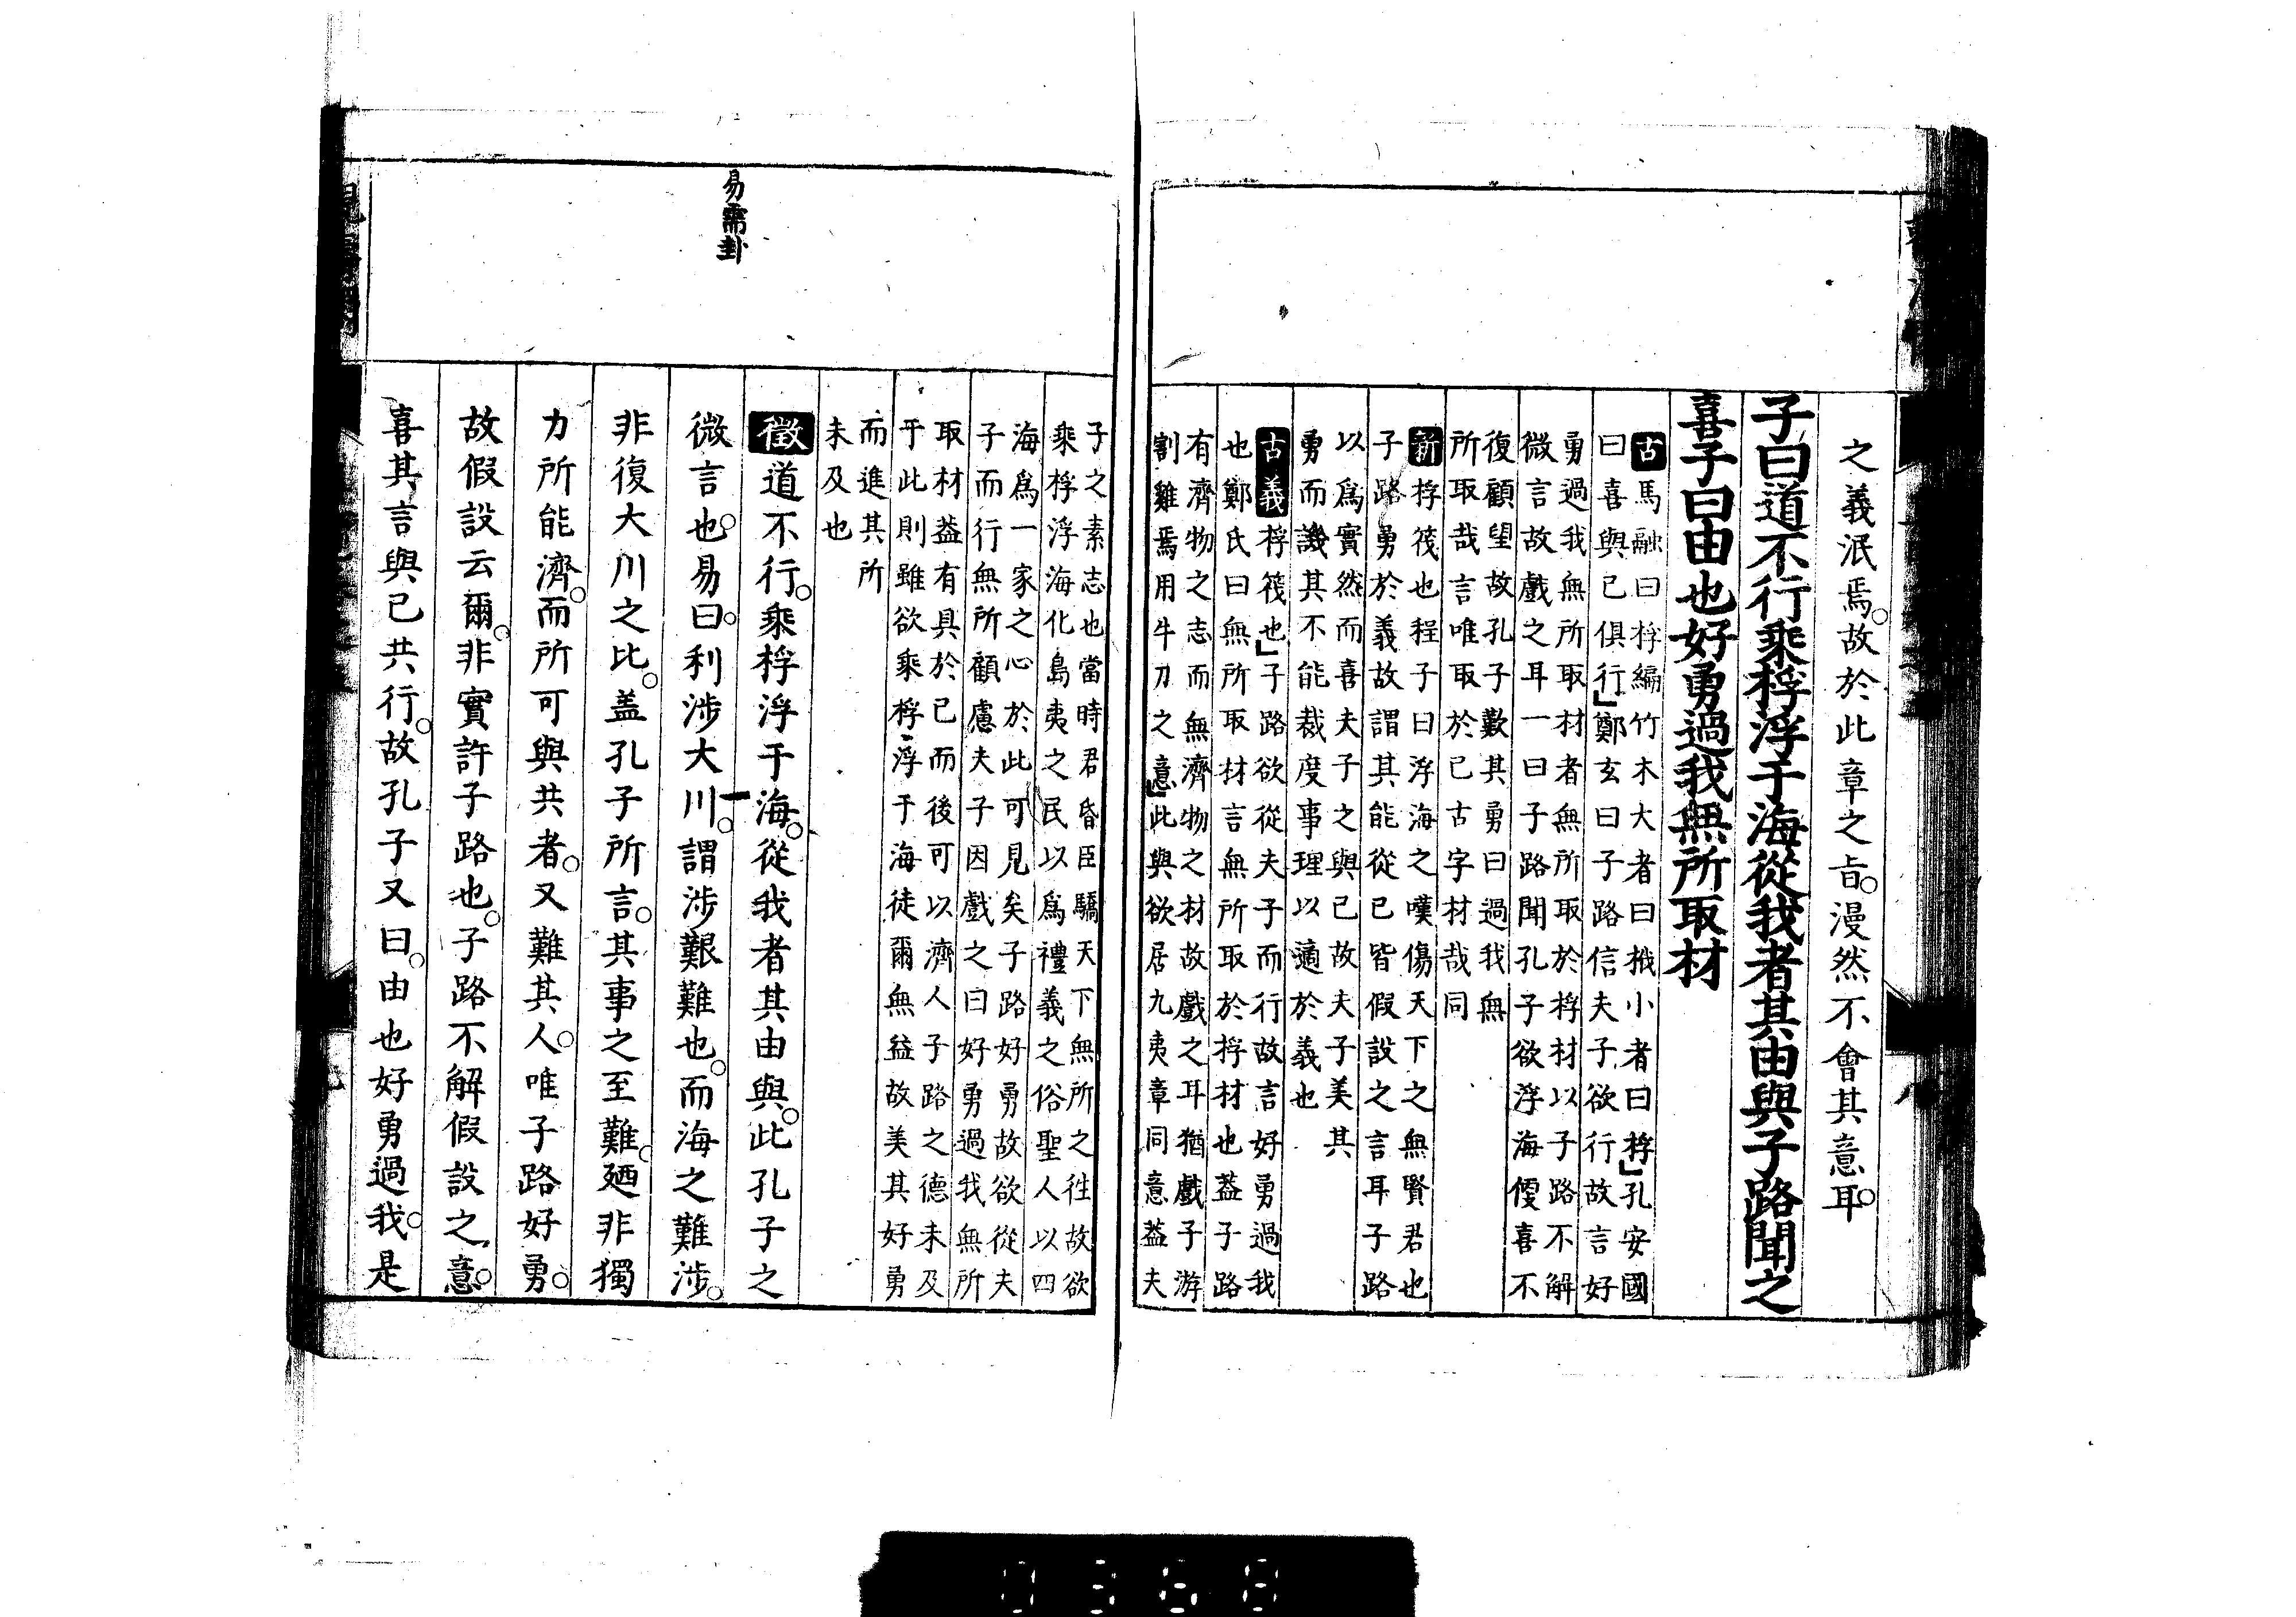 之義泯焉。故於此章之旨。漫然不會其意耳。
子曰道不行乘桴浮于海從我者其由與子路聞之
喜子曰由也好勇過我無所取材
古馬融曰桴編竹木大者曰栰小者曰桴」孔安國
曰喜與己俱行」鄭玄曰子路信夫子欲行故言好
勇過我無所取材者無所取於桴材以子路不解
微言故戲之耳一曰子路聞孔子欲浮海便喜不
復顧望故孔子歎其勇曰過我無
所取哉言唯取於己古字材哉同
新桴筏也程子曰浮海之嘆傷天下之無賢君也
子路勇於義故謂其能從己皆假設之言耳子路
以爲實然而喜夫子之與己故夫子美其
勇而譏其不能裁度事理以適於義也
古義桴筏也」子路欲從夫子而行故言好勇過我
也鄭氏曰無所取材言無所取於桴材也蓋子路
有濟物之志而無濟物之材故戲之耳猶戲子游
割雞焉用牛刀之意」此與欲居九夷章同意蓋夫
子之素志也當時君昏臣驕天下無所之往故欲
乘桴浮海化島夷之民以爲禮義之俗聖人以四
海爲一家之心於此可見矣子路好勇故欲從夫
子而行無所顧慮夫子因戲之曰好勇過我無所
取材蓋有具於己而後可以濟人子路之德未及
乎此則雖欲乘桴浮于海徒爾無益故美其好勇
而進其所
未及也
易需卦
徵道不行。乘桴浮于海。從我者其由與。此孔子之
微言也。易曰。利涉大川。謂涉艱難也。而海之難涉。
非復大川之比。蓋孔子所言。其事之至難。廼非獨
力所能濟。而所可與共者。又難其人。唯子路好勇。
故假設云爾。非實許子路也。子路不解假設之意。
喜其言與己共行。故孔子又曰。由也好勇過我。是